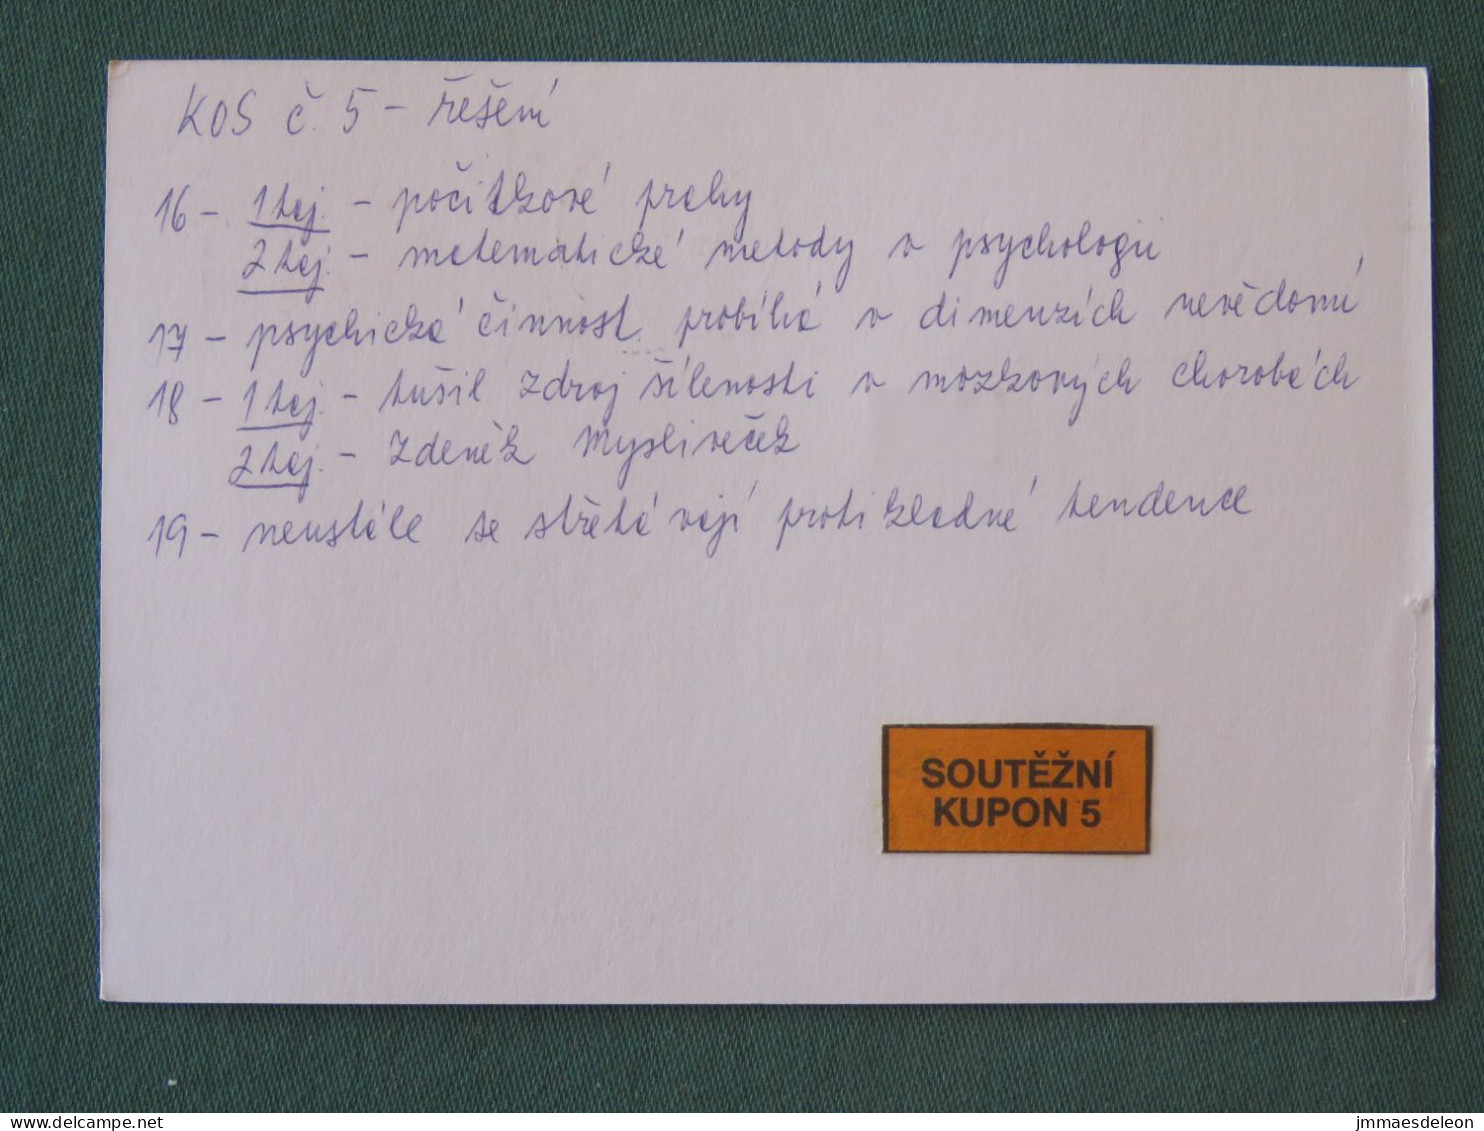 KOS č. 5 - řešení
16 - 1 taj. - počitkové prahy
2 taj. - matematické metody v psychologii
17 - psychická činnost probíhá v dimenzích nevědomí
18 - 1 taj. - tušil zdroj šílenosti v mozkových chorobách
2 taj. - Zdeněk Mysliveček
19 - neustále se střetávají protikladné tendence
SOUTĚŽNÍ
KUPON 5
delcampe.net
jmmaesdeleon